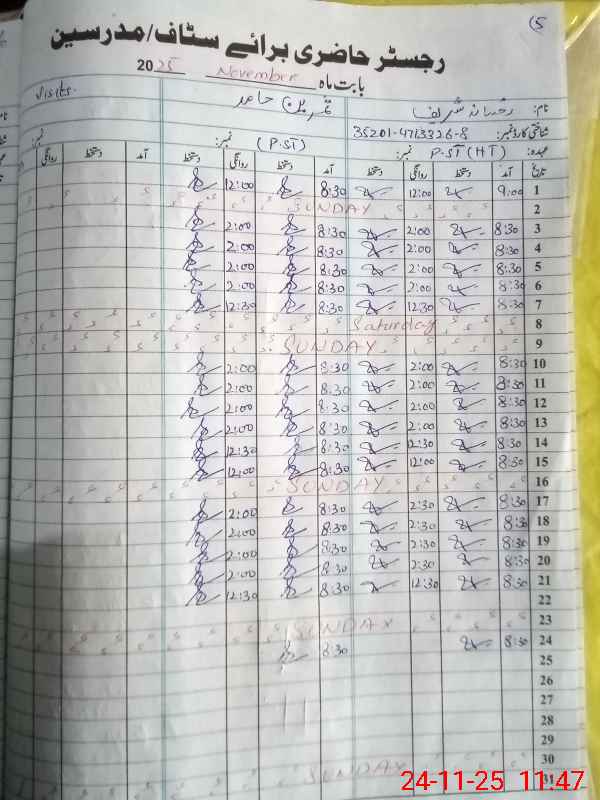 5
رجسٹر حاضری برائے سٹاف/مدرسین
بابت ماہ November 2025
Visits.
نام: رخسانہ شریف
ثمرین حامد
شناختی کارڈ نمبر: 35201-4713326-8
عہدہ: P-ST (HT) نمبر: (P-ST) نمبر:
تاریخ آمد دستخط روانگی دستخط آمد دستخط روانگی دستخط آمد دستخط روانگی
1 9:00 12:00 8:30 12:00
2 SUNDAY
3 8:30 2:00 8:30 2:00
4 8:30 2:00 8:30 2:00
5 8:30 2:00 8:30 2:00
6 8:30 2:00 8:30 2:00
7 8:30 12:30 8:30 12:30
8 Saturday
9 SUNDAY
10 8:30 2:00 8:30 2:00
11 8:30 2:00 8:30 2:00
12 8:30 2:00 8:30 2:00
13 8:30 2:00 8:30 2:00
14 8:30 12:30 8:30 12:30
15 8:30 12:00 8:30 12:00
16 SUNDAY
17 8:30 2:30 8:30 2:00
18 8:30 2:30 8:30 2:00
19 8:30 2:30 8:30 2:00
20 8:30 2:30 8:30 2:00
21 8:30 12:30 8:30 12:30
22
23 SUNDAY
24 8:30 8:30
25
26
27
28
29
30 SUNDAY
31
24-11-25 11:47